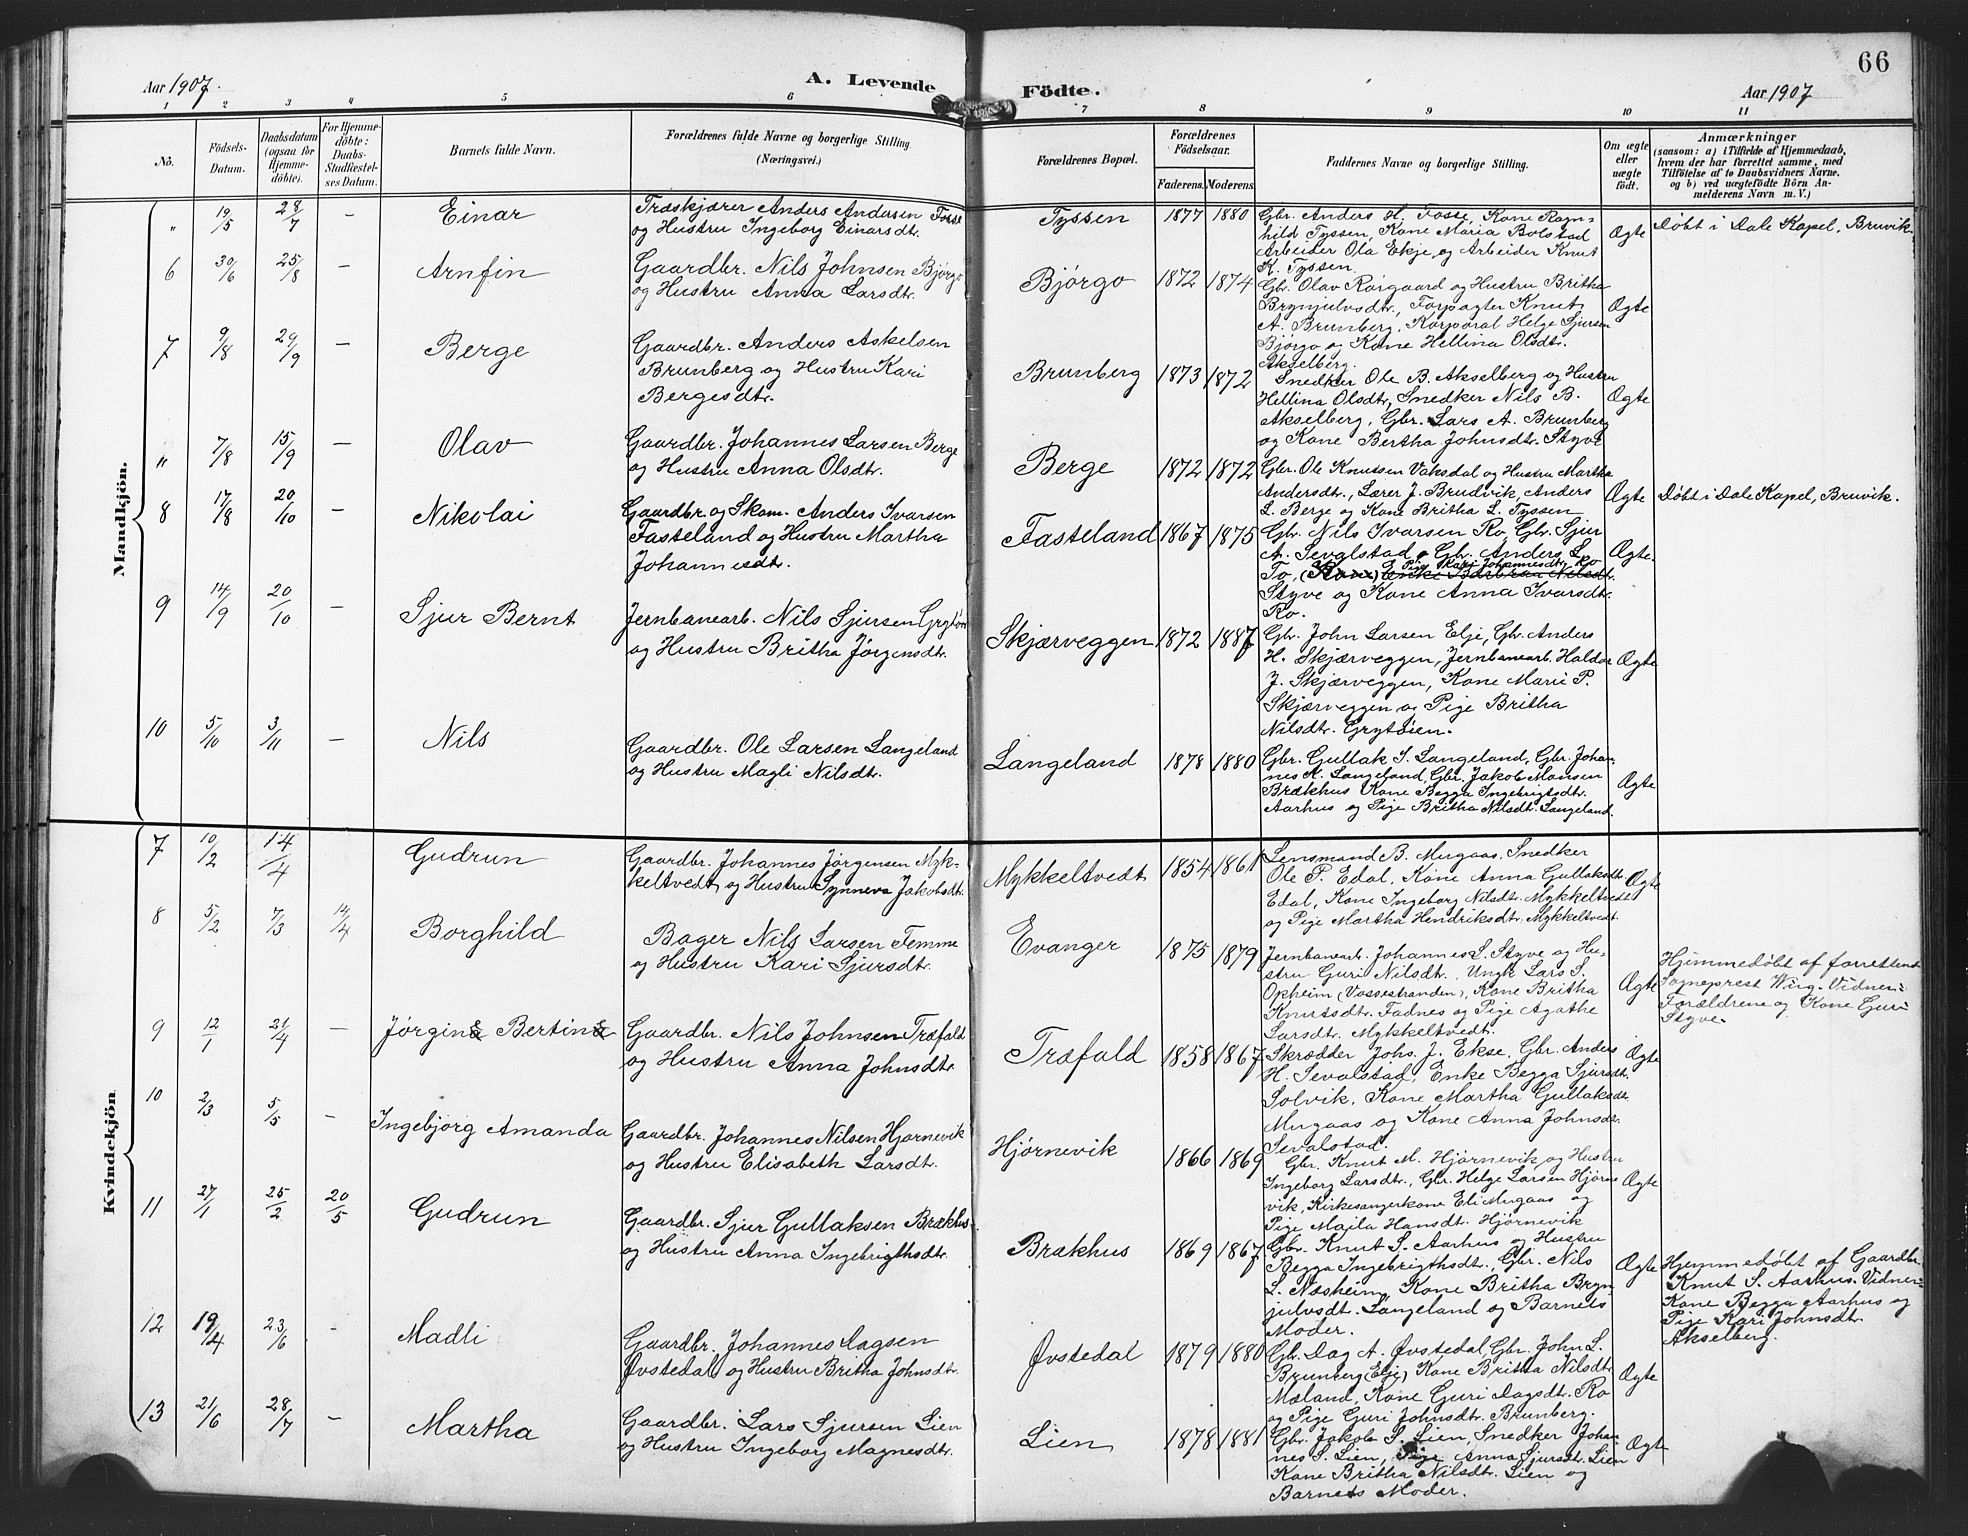 66
Aar 1907.
A. Levende
Födte.
Aar 1907
1 2 3 4 5 6 7 8 9 10 11
No.
Födsels-
Datum.
Daabsdatum
(ogsaa for
Hjemme-
döbte).
For Hjemme-
döbte:
Daabs-
Stadfæstel-
ses Datum.
Barnets fulde Navn.
Forældrenes fulde Navne og borgerlige Stilling.
(Næringsvei.)
Forældrenes Bopæl.
Forældrenes
Födselsaar.
Faderens. Moderens.
Faddernes Navne og borgerlige Stilling.
Om ægte
eller
uægte
födt.
Anmærkninger
(saasom: a) i Tilfælde af Hjemmedaab,
hvem der har forrettet samme, med
Tilföielse af to Daabsvidners Navne,
og b) ved uægtefödte Börn An-
melderens Navn m. V.)
Mandkjön.
" 19/5 28/7 - Einar
Træskjærer Anders Andersen Fosse
og Hustru Ingeborg Einarsdt.
Tyssen 1877 1880
Gbr. Anders H. Fosse, Kone Ragn-
hild Tyssen, Kone Maria Bolstad
Arbeider Ola Ekje, og Arbeider Knut
K. Tyssen.
Ægte
Døbt i Dale Kapel, Bruvik.
6 30/6 25/8 - Arnfin
Gaardbr. Nils Johnsen Bjørgo
og Hustru Anna Larsdtr.
Bjørgo 1872 1874
Gbr. Olav Rørgaard og Hustru Britha
Brynjulvsdtr., Forpagter Knut
A. Brunberg, Korporal Helge Sjursen
Bjørgo og Kone Hellina Olsdtr.
Akselberg.
Ægte
7 9/8 29/9 - Berge
Gaardbr. Anders Askelsen
Brunberg og Hustru Kari
Bergesdtr.
Brunberg 1873 1872
Snedker Ole B. Akselberg og Hustru
Hellina Olsdtr, Snedker Nils B.
Akselberg, Gbr. Lars A. Brunberg
og Kone Bertha Johnsdtr. Styve
Ægte
" 7/8 15/9 - Olav
Gaardbr. Johannes Larsen Berge
og Hustru Anna Olsdtr.
Berge 1872 1872
Gbr. Ole Knutsen Viksdal og Hustru Martha
Andersdtr., Lærer J. Brudvik, Anders
L. Berge og Kone Britha L. Tyssen
Ægte
Døbt i Dale Kapel, Bruvik.
8 17/8 20/10 - Nikolai
Gaardbr. og Skom. Anders Ivarsen
Fasteland og Hustru Martha
Johannesdtr.
Fasteland 1867 1875
Gbr. Nils Ivarsen Ro, Gbr. Sjur
A. Sevalstad, Gbr. Anders L.
Pige Kari Johannesdtr. Ro
To, (Kone) Enke Barbran Nilsdt.
Styve og Kone Anna Ivarsdtr.
Ro.
Ægte.
9 14/9 20/10 - Sjur Bernt
Jernbanearb. Nils Sjursen Grytøien
og Hustru Britha Jørgensdtr.
Skjærveggen 1872 1887
Gbr. John Larsen Elje, Gbr. Anders
H. Skjærveggen, Jernbanearb. Haldor
J. Skjærveggen, Kone Mari P.
Skjærveggen og Pige Britha
Nilsdtr. Grytøien.
Ægte
10 5/10 3/11 - Nils
Gaardbr. Ole Larsen Langeland
og Hustru Magli Nilsdtr.
Langeland 1878 1880
Gbr. Gullak S. Langeland, Gbr. Johan-
nes A. Langeland, Gbr. Jakob Monsen
Brækhus Kone Begga Ingebrigtsdtr.
Aarhus og Pige Britha Nilsdt. Langeland.
Ægte
Kvindekjön
7 10/2 14/4 Gudrun
Gaardbr. Johannes Jørgensen Myk-
keltvedt og Hustru Synneva Jakobsdt.
Mykkeltvedt 1854 1861
Lensmand B. Mugaas, Snedker
Ole P. Edal, Kone Anna Gullaksdt.
Edal, Kone Ingeborg Nilsdt. Mykkeltvedt
og Pige Martha Hendriksdt. Mykkeltvedt.
Ægte
8 5/2 7/3 14/4 Borghild
Bager Nils Larsen Femme
og Hustru Kari Sjursdtr.
Evanger 1875 1879
Jernbanearb. Johannes S. Styve og Hu-
stru Guri Nilsdtr. Ungk Lars S.
Opheim (Vossestranden), Kone Britha
Knutsdt. Fadnes og Pige Agathe
Larsdt. Mykkeltvedt.
Ægte
Hjemmedøbt af forrettend
Sogneprest Wiig. Vidner:
Forældrene og Kone Guri
Styve.
9 12/1 21/4 - Jørgine Bertine
Gaardbr. Nils Johnsen Træfald
og Hustru Anna Johnsdtr.
Træfald 1858 1867
Skrædder Johs. J. Ekse, Gbr. Anders
H. Sevalstad, Enke Begga Sjursdt.
Solvik, Kone Martha Gullaksdt.
Mugaas og Kone Anna Johnsdtr.
Sevalstad.
Ægte
10 2/3 5/5 - Ingebjorg Amanda
Gaardbr. Johannes Nilsen Hjørnevik
og Hustru Elisabeth Larsdtr.
Hjørnevik 1866 1869
Gbr. Knut M. Hjørnevik og Hustru
Ingeborg Larsdtr., Gbr. Helge Larsen Hjørne
vik, Kirkesangerkone Eli Mugaas og
Pige Maila Hansdt. Hjørnevik
Ægte
11 27/1 25/2 20/5 Gudrun
Gaardbr. Sjur Gullaksen Brækhus
og Hustru Anna Ingebrigthsdtr.
Brækhus 1869 1867
Gbr. Knut S. Aarhus og Hustru
Begga Ingebrigthsdtr., Gbr. Nils
L. Næsheim, Kone Britha Bryn-
julvsdt. Langeland og Barnets
Moder.
Ægte
Hjemmedøbt af Gaardbr.
Knut S. Aarhus. Vidner:
Kone Begga Aarhus og
Pige Kari Johnsdtr.
Akselberg.
12 19/4 23/6 - Madli
Gaardbr. Johannes Dagsen
Øvstedal og Hustru Britha Johnsdtr.
Øvstedal 1879 1880
Gbr. Dag A. Øvstedal, Gbr. John L.
Brunberg (Elje) Kone Britha Nilsdtr
Mæland, Kone Guri Dagsdtr. Ro
og Pige Guri Johnsdtr. Brunberg.
Ægte
13 21/6 28/7 - Martha
Gaardbr. Lars Sjursen Lien
og Hustru Ingeborg Magnesdtr.
Lien 1878 1881
Gbr. Jakob S. Lien, Snedker Johan-
nes S. Lien, Pige Anna Sjursdt. Lien
Kone Britha Nilsdt. Lien og
Barnets Moder.
Ægte